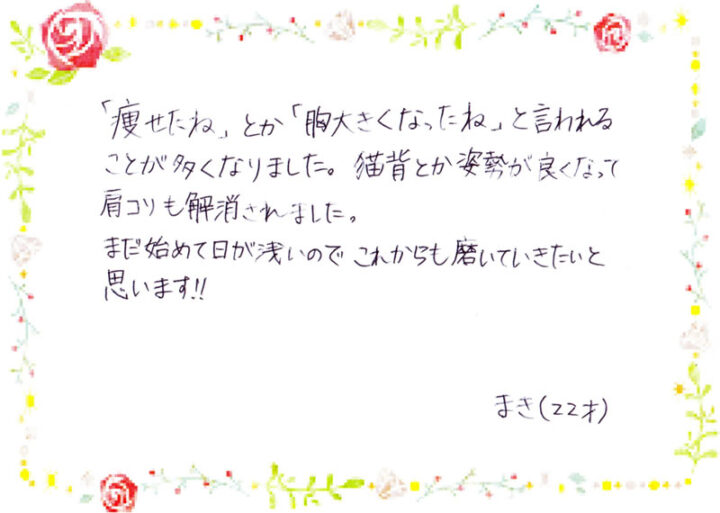 「痩せたね」とか「胸大きくなったね」と言われる
ことが多くなりました。猫背とか姿勢が良くなって
肩コリも解消されました。
まだ始めて日が浅いので これからも磨いていきたいと
思います!!
まき(22才)